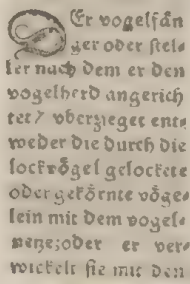 DEr vogelfän
ger oder stel⸗
ler nach dem er den
vogelherd angerich
tet / vberzieget ent⸗
weder die durch die
lockvögel gelockete
oder gekörnte vöge⸗
lein mit dem vogel⸗
netze; oder er ver⸗
wickelt sie mit den